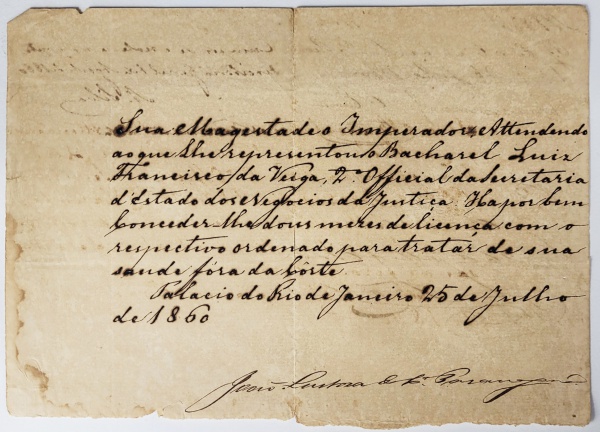 Sua Magestade o Imperador, Attendendo
ao que Lhe representou o Bacharel Luiz
Francisco da Veiga, 2º Official da Secretaria
d'Estado dos Negocios da Justiça: Ha por bem
Conceder-lhe dous mezes de licença com o
respectivo ordenado para tratar de sua
saude fóra da Côrte.
Palacio do Rio de Janeiro 25 de Julho
de 1860
João Lustosa da Cª Paranaguá